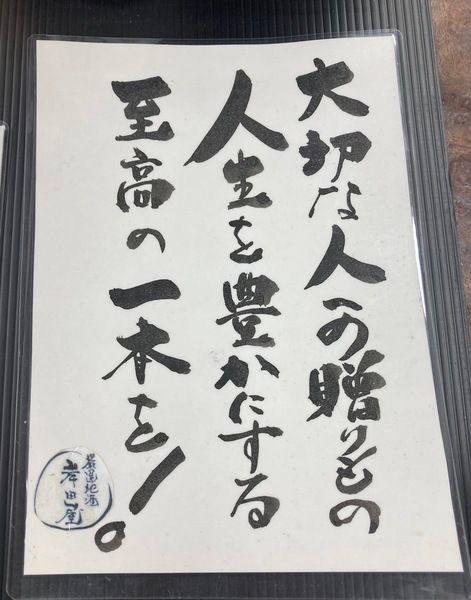 大切な人への贈りもの
人生を豊かにする
至高の一本を!。
厳選地酒
岸田屋